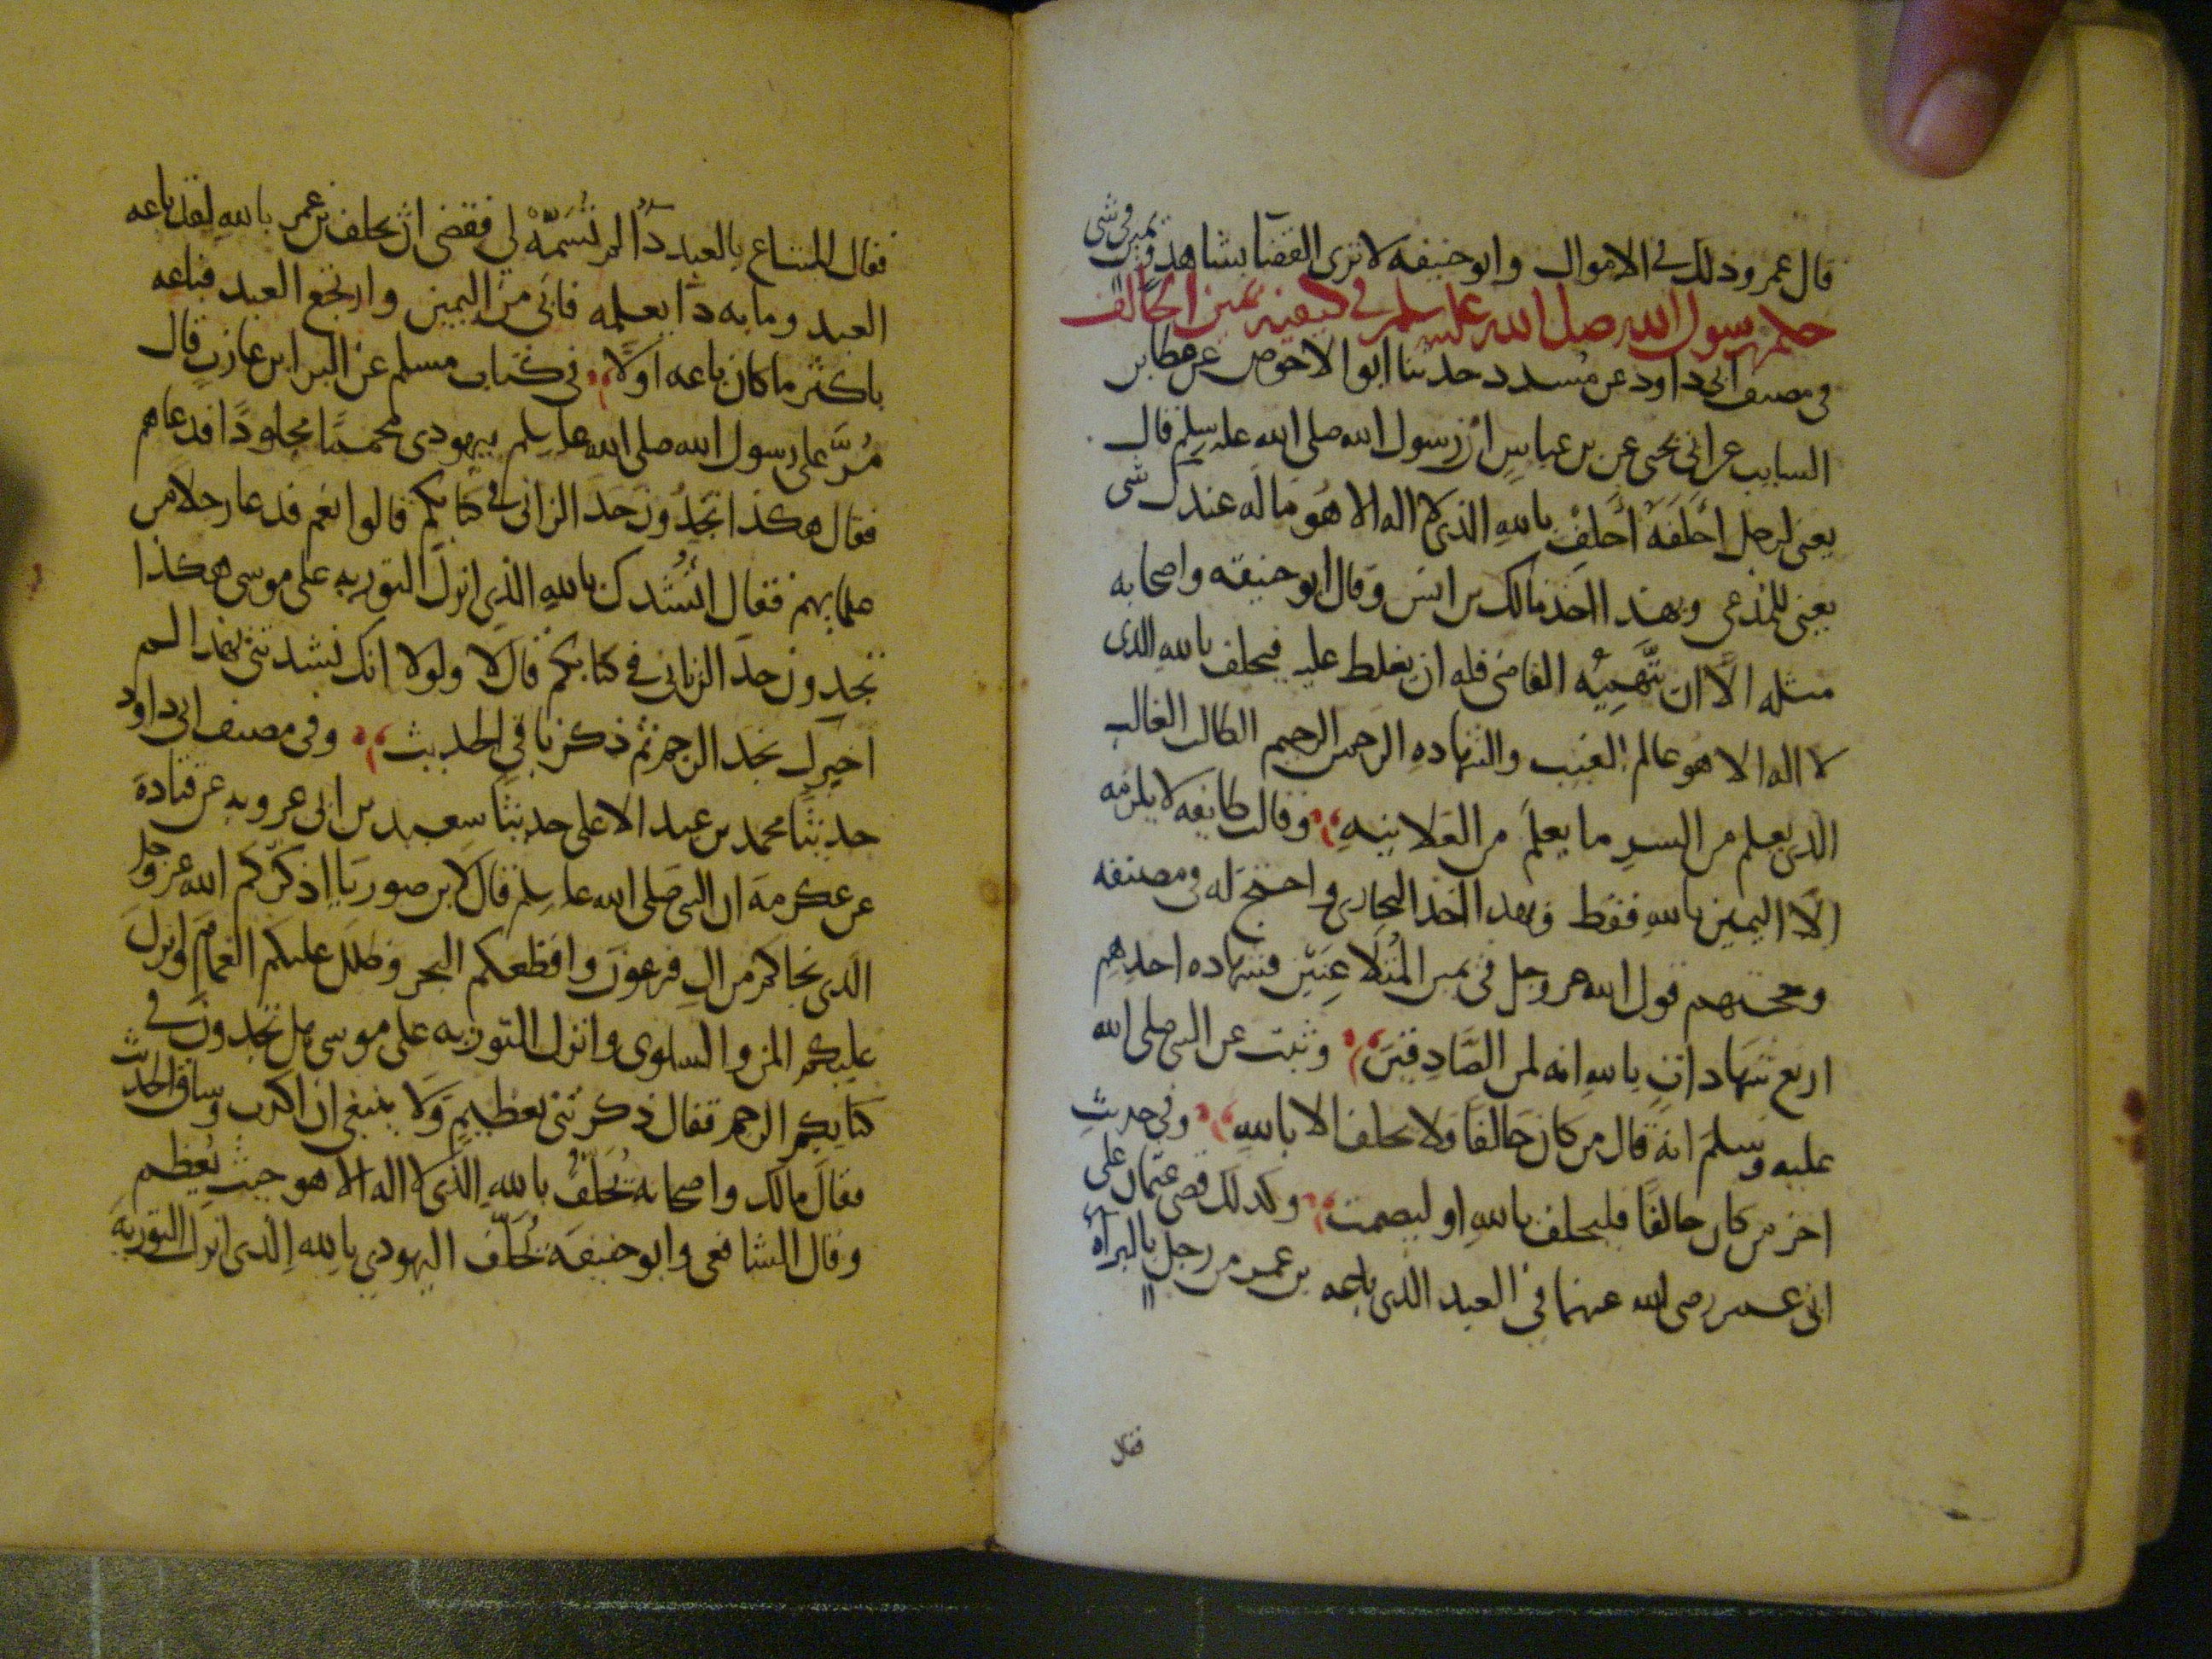 قال عمرو ذلك في الاموال وابو حنيفه لا يرى القضا بشاهد ويمين في شي
حكم رسول الله صلى الله عليه وسلم في كيفيه يمين الحالف
في مصنف ابي داود عن مسدد حدثنا ابو الاحوص عن عطا بن
السايب عن ابي يحيى عن بن عباس ان رسول الله صلى الله عليه وسلم قال
يعني لرجل احلفه احلف بالله الذي لا اله الا هو ما له عندك شي
يعني للمدعي وبهذا اخذ مالك بن انس وقال ابو حنيفه واصحابه
مثله الا ان يتهمه القاضي فله ان يغلظ عليه فيحلف بالله الذي
لا اله الا هو عالم الغيب والشهاده الرحمن الرحيم الطالب الغالب
الذي يعلم من السر ما يعلم من العلانيه وقالت طايفه لا يلزمه
الا اليمين بالله فقط وبهذا اخذ البخاري واحتج له في مصنفه
وحجتهم قول الله عز وجل في يمين المتلاعنين فشهاده احدهم
اربع شهادات بالله انه لمن الصادقين وثبت عن النبي صلى الله
عليه وسلم انه قال من كان حالفا ولا يحلف الا بالله وفي حديث
اخر من كان حالفا فليحلف بالله او ليصمت وكذلك قضى عثمان على
ابن عمر رضي الله عنهما في العبد الذي باعه بن عمر من رجل بالبراه
فقال
فقال المبتاع بالعبد دا لم تسمه لي فقضى ان يحلف بن عمر بالله لقد باعه
العبد وما به دا يعلمه فابى من اليمين وارتجع العبد فباعه
باكثر ما كان باعه اولا في كتاب مسلم عن البرا ابن عازب قال
مر على رسول الله صلى الله عليه وسلم بيهودي محمما مجلودا فدعاهم
فقال هكذا تجدون حد الزاني في كتابكم قالوا نعم فدعا رجلا من
علمايهم فقال انشدك بالله الذي انزل التوريه على موسى هكذا
تجدون حد الزاني في كتابكم قال لا ولولا انك نشدتني بهذا لم
اخبرك نجد الرجم ثم ذكر باقي الحديث وفي مصنف ابي داود
حدثنا محمد بن عبد الاعلى حدثنا سعيد بن ابي عروبه عن قتادة
عن عكرمة ان النبي صلى الله عليه وسلم قال لابن صوريا اذكركم الله عز وجل
الذي نجاكم من ال فرعون واقطعكم البحر وظلل عليكم الغمام وانزل
عليكم المن والسلوى وانزل التوريه على موسى هل تجدون في
كتابكم الرجم فقال ذكرتني بعظيم ولا ينبغي ان اكذب وساق الحديث
فقال مالك واصحابه يحلف بالله الذي لا اله الا هو حيث يعظم
وقال الشافعي وابو حنيفه يحلف اليهودي بالله الذي انزل التوريه